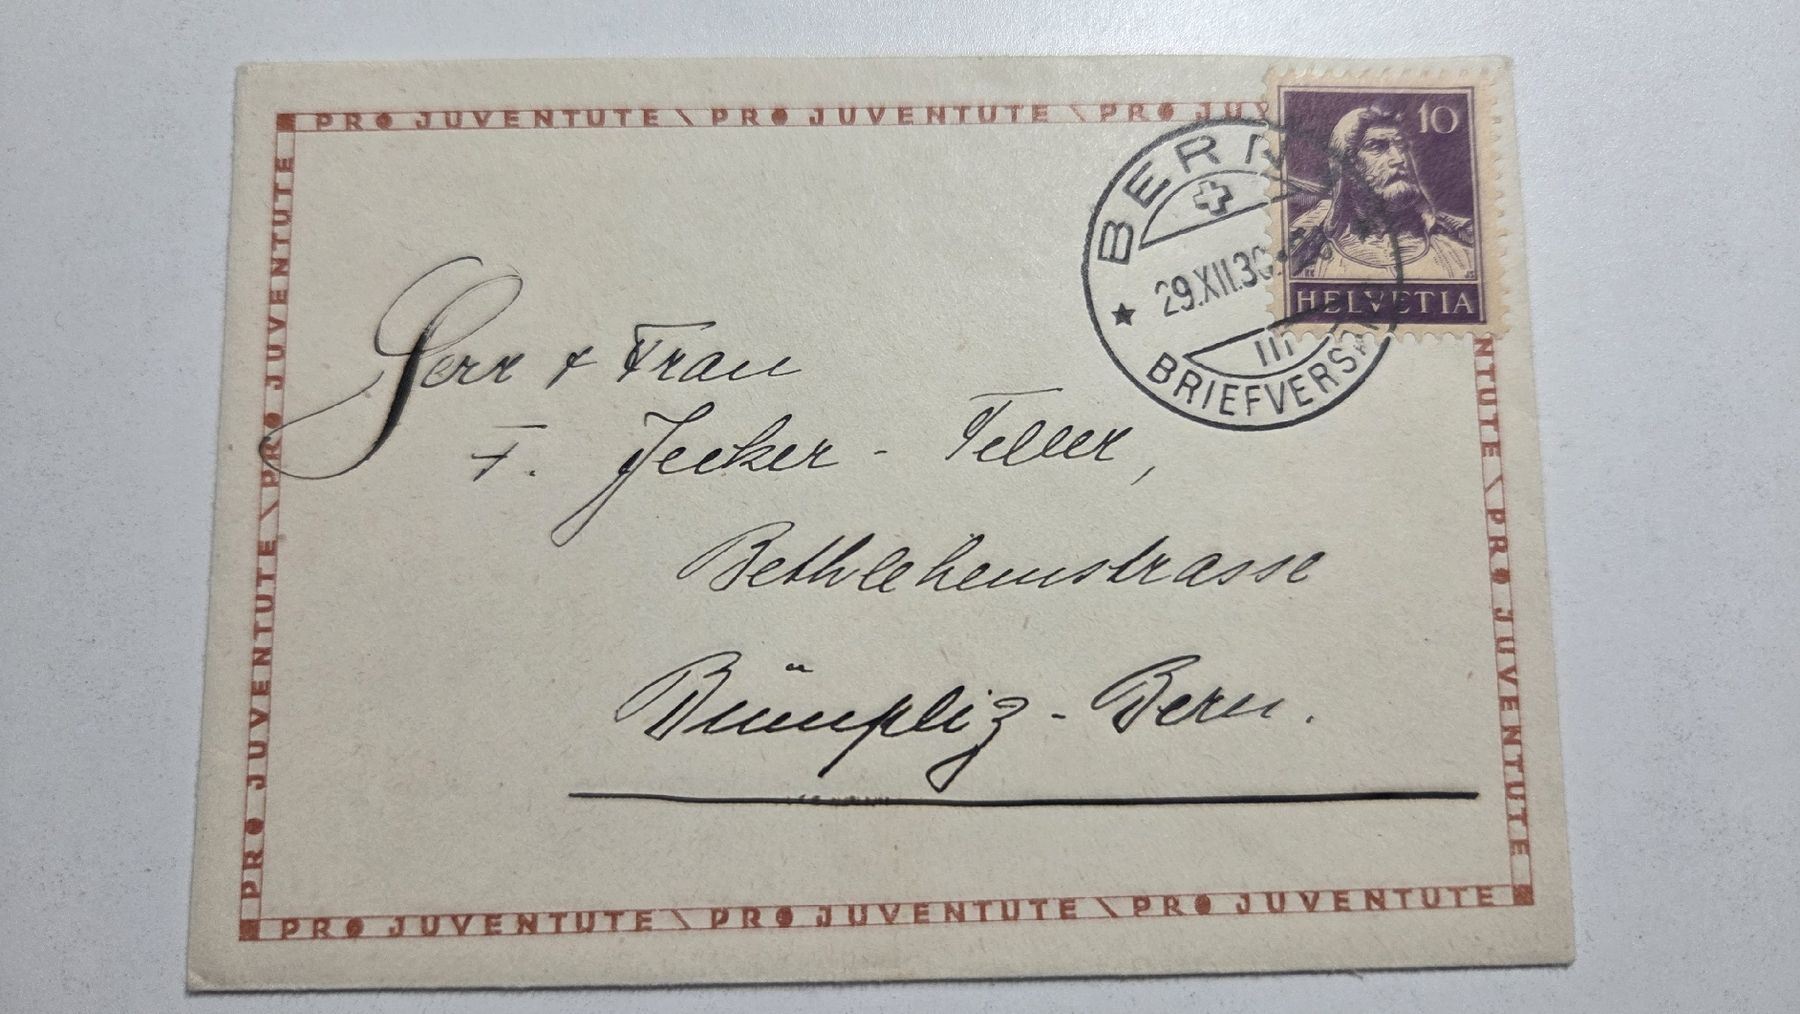 PRO JUVENTUTE \ PRO JUVENTUTE \ PRO JUV
10
HELVETIA
BERN
29.XII.30
III
BRIEFVERSAND
Herr & Frau
F. Jecker - Feller,
Bethlehemstrasse
Bümpliz - Bern.
PRO JUVENTUTE \ PRO JUVENTUTE \ PRO JUVENTUTE
NTUTE \ PRO JUVENTUTE
PRO JUVENTUTE \ PRO JUVENTUTE \ PRO JUVENTUTE